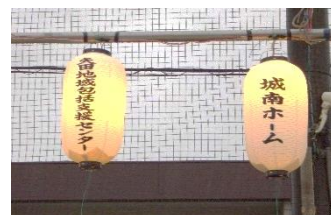 矢田地域包括支援センター
城南ホーム